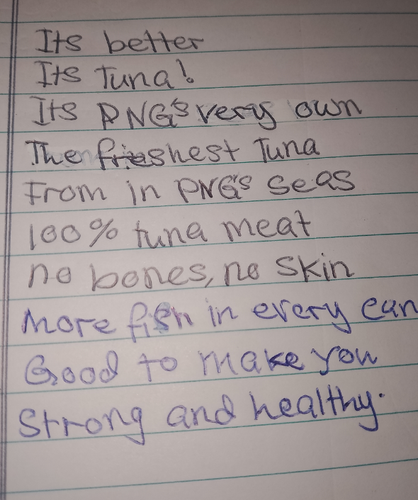 Its better
Its Tuna!
Its PNG's very own
The freshest Tuna
From in PNG's seas
100% tuna meat
no bones, no skin
More fish in every can
Good to make you
Strong and healthy.